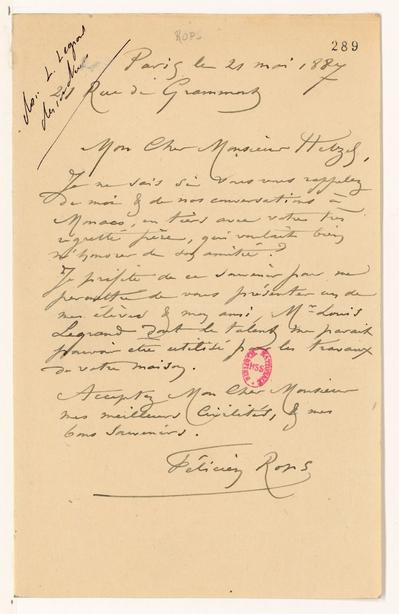 ROPS
289
Mr. L. Legrand
Paris le 21 mai 1887
21 Rue de Grammont
Mon Cher Monsieur Hetzel,
Je ne sais si vous vous rappelez
de moi & de nos conversations à
Monaco, en tiers avec votre très
regretté père, qui voulait bien
m'honorer de son amitié?
Je profite de ce souvenir pour me
permettre de vous présenter un de
mes élèves & mon ami, Mr Louis
Legrand dont le talent me parait
pouvoir etre utilisé par les travaux
de votre maison.
Acceptez Mon Cher Monsieur
mes meilleurs Civilités, & mes
bons souvenirs.
Félicien Rops
MSS